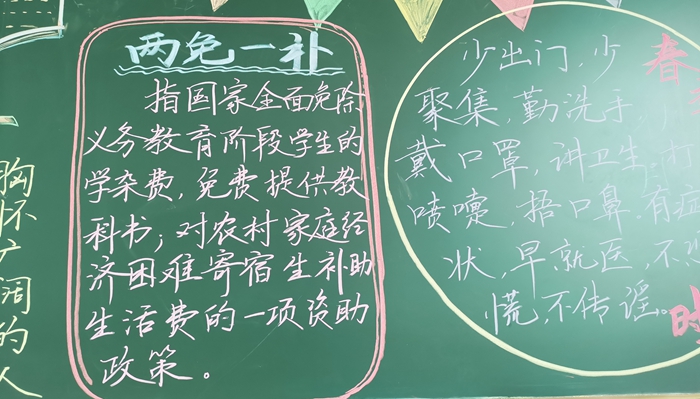 胸怀广阔的人
两免一补
指国家全面免除
义务教育阶段学生的
学杂费，免费提供教
科书；对农村家庭经
济困难寄宿生补助
生活费的一项资助
政策。
少出门，少
聚集，勤洗手，
戴口罩，讲卫生，打
喷嚏，捂口鼻，有症
状，早就医，不恐
慌，不传谣。
春
时